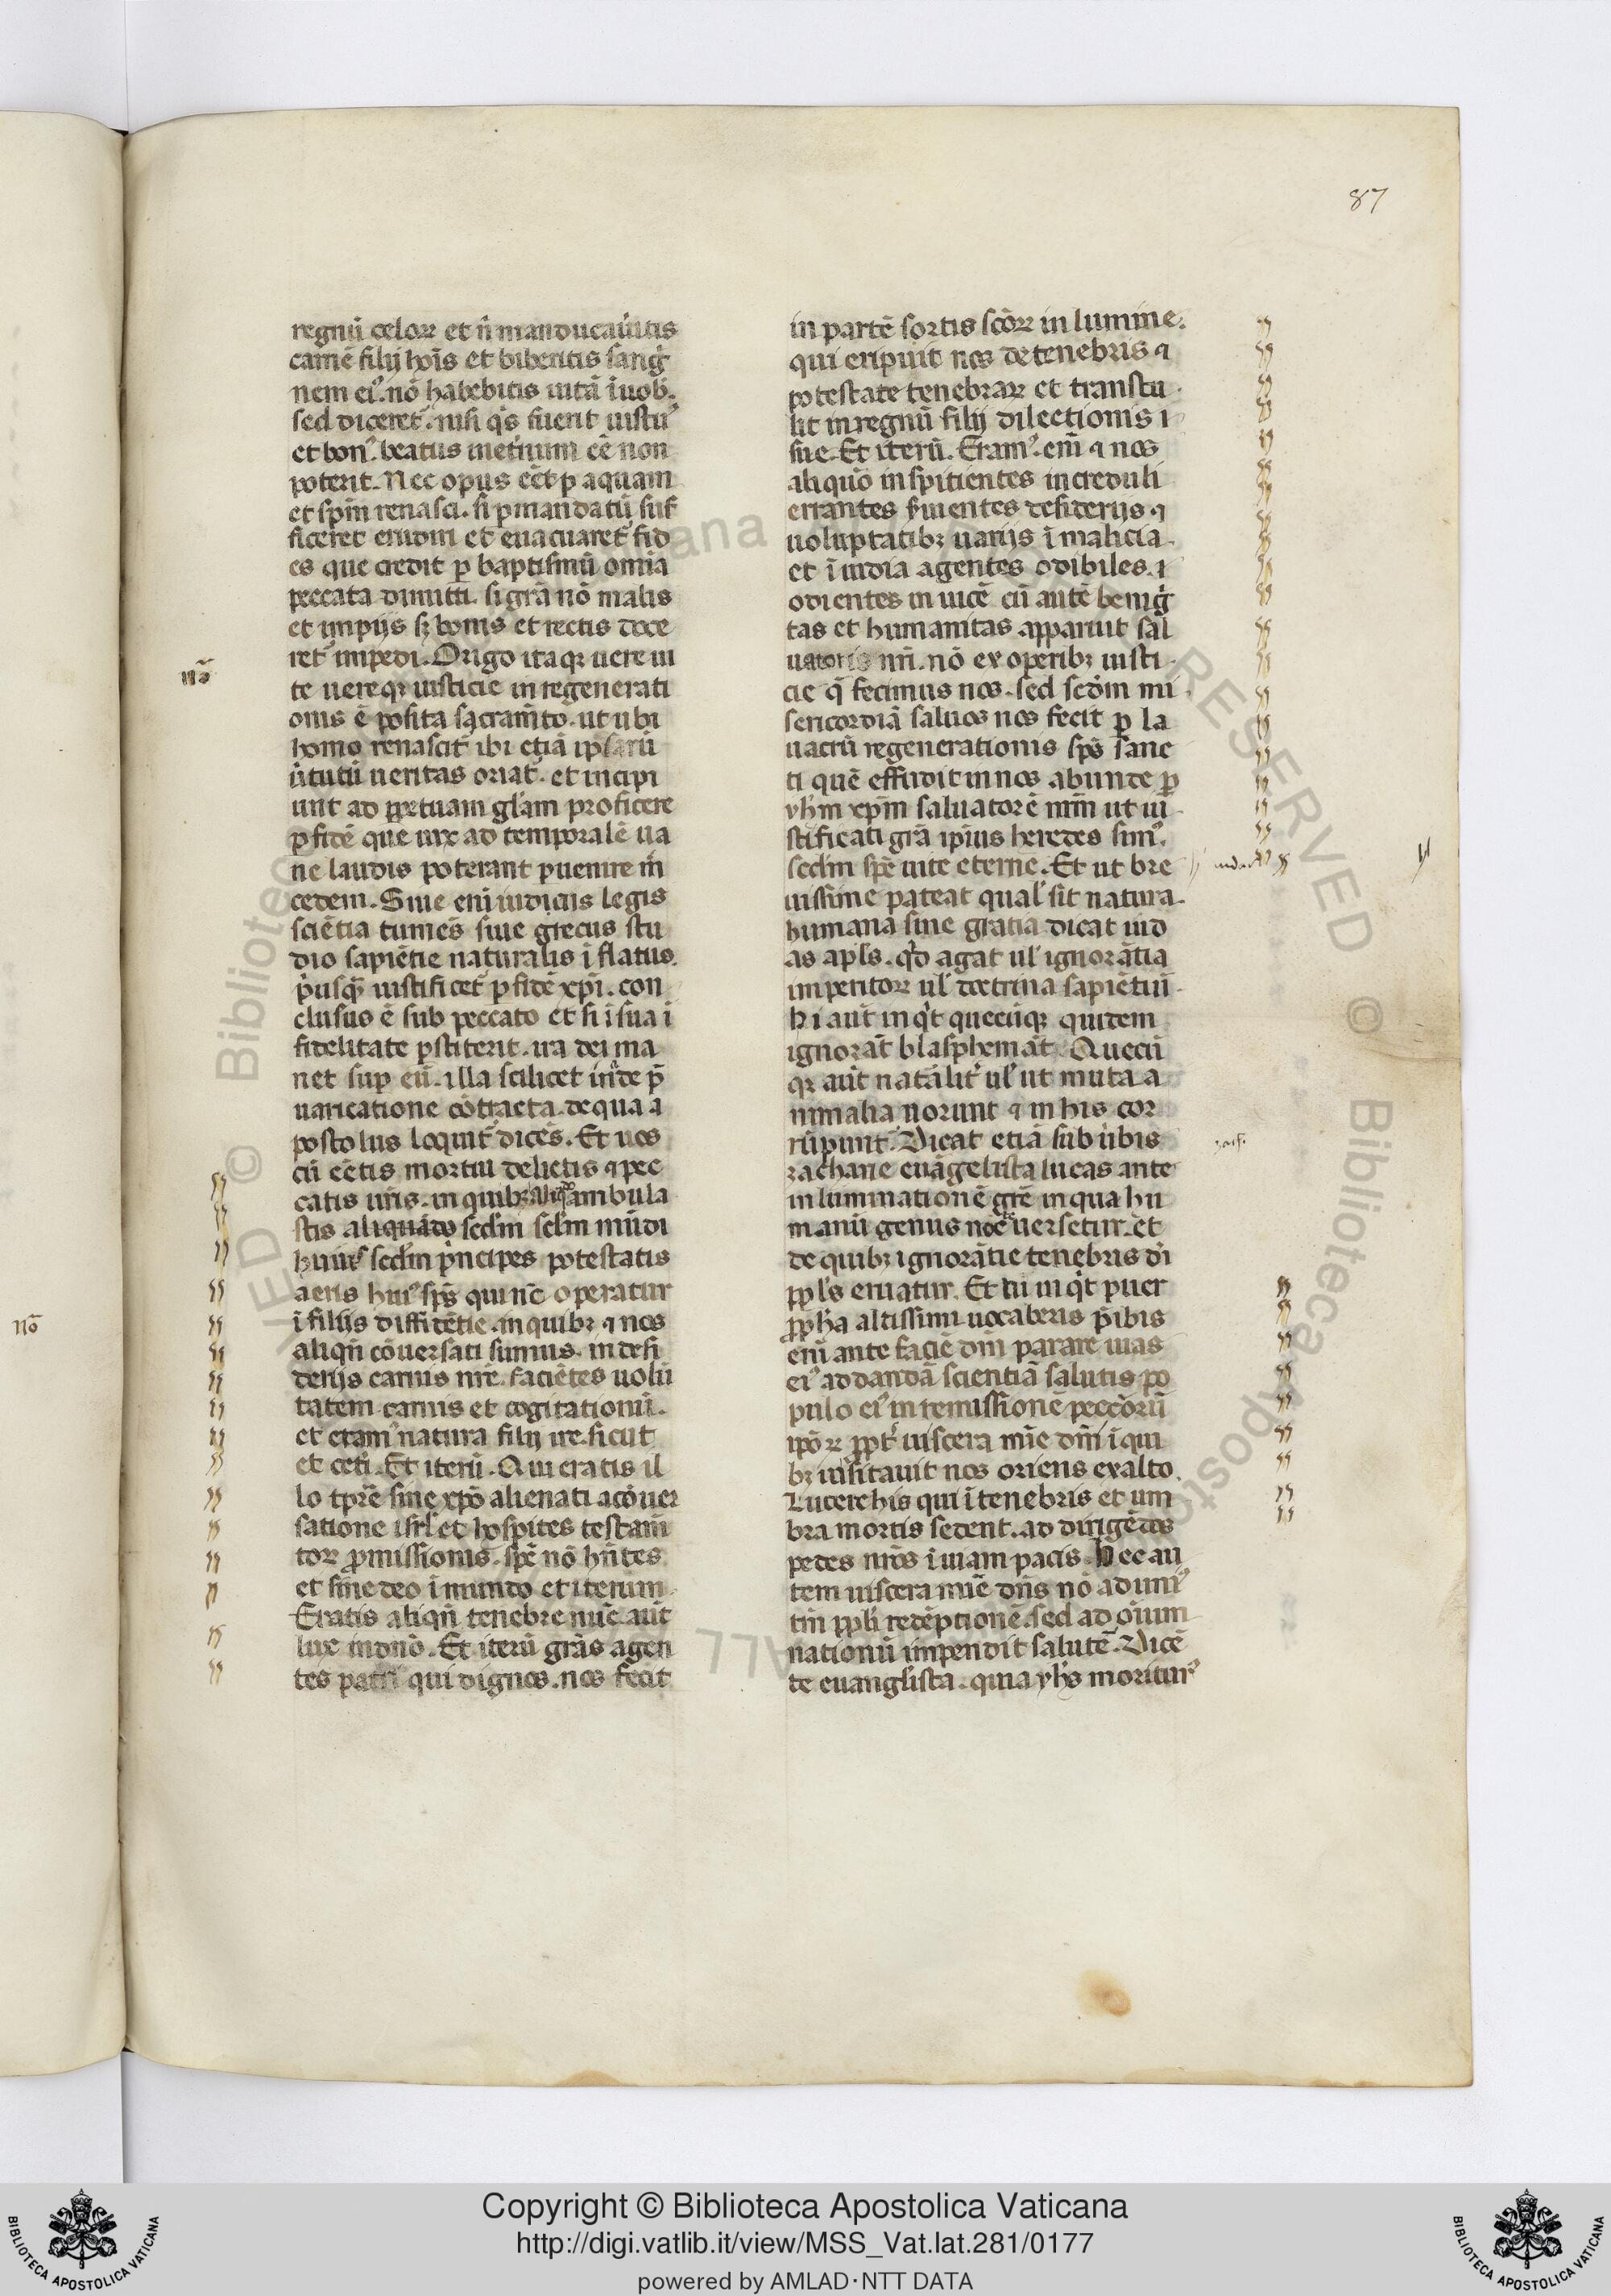 87
regnū celoꝝ et ñ manducaūitis
carnē filij hoīs et biberitis sangͥ
nem eiꝰ. nō habebitis uitā ī uob̄.
sed diceret᷑. nisi q̇s fuerit iustꝰ
et bonꝰ. beatus inet̓num eē non
poterit. Nec opus eēt p̱ aquam
et sp̄m renasci. si p̱ mandatū suf
ficeret erudiri et euacuaret᷑ fid
es que credit p̱ baptismū omīa
peccata dimitti. si grā nō malis
et impijs sꝫ bonis et rectis doce
ret᷑ impedi. Origo itaqꝫ uere ui
te uereqꝫ iusticie in regenerati
onis ē posita sacram̄to. ut ubi
homo renascit᷑ ibi etiā ipsarū
ũtutū ueritas oriat᷑. et incipi
unt ad ꝑpetuam gl̄am proficere
ꝑ fidē que uix ad temporalē ua
ne laudis poterant ꝑuenire m̄
cedem. Siue eni iudicus legis
sciētia tumēs siue grecus stu
dio sapiētie naturalis īflatus.
pͥusqͣ iustificet᷑ ꝑ fidē xp̄i. con
clusus ē sub peccato et si ī sua i
fidelitate ꝑstiterit. ira dei ma
net suꝑ eū. illa scilicet inde p̄
uaricatione cōtracta. de qua a
postolus loquit᷑ dicēs. Et uos
cū eētis mortui delictis ⁊ pec
catis ur̄is. in quibꝫ aliqͣdo ambula
stis aliquādo scd̄m scl̄m mūdi
huiuꝰ scd̄m pͥncipes potestatis
aeris huiꝰ sp̄s qui nūc operatur
ī filijs diffidētie. in quibꝫ ⁊ nos
aliqn̄ cōuersati sumus. in desi
derijs carnis nr̄e. faciētes uolū
tatem carnis et cogitationū.
et eramꝰ natura filij ire. sicut
et cet̓i. Et iterū. Qui eratis il
lo tp̄re sine xp̄o alienati a cōuer
satione isrl̄ et hospites testam̄
toꝝ ꝓmissionis. spē nō hn̄tes
et sine deo ī mundo et iterum.
Eratis aliqn̄ tenebre nūc aut̄
lux in dn̄o. Et iterū grās agen
tes patri qui dignos. nos fecit
in partē sortis scōꝝ in lumine.
qui eripuit nos de tenebris ⁊
potestate tenebraꝝ et transtu
lit in regnū filij dilectionis i
sue. Et iterū. Eramꝰ. em̄ ⁊ nos
aliquō insipitientes increduli
errantes s̓uientes desiderijs. ⁊
uoluptatibꝫ uarijs ī malicia.
et ī uidia agentes odibiles. i
odientes in uicē cū autē benigͥ
tas et humanitas apparuit sal
uatoris nr̄i. nō ex operibꝫ iusti
cie q̄ fecimus nos. sed scd̄m mi
sericordiā saluos nos fecit ꝑ la
uacrū regenerationis sp̄s sanc
ti quē effudit in nos abunde ꝑ
yhm̄ xp̄m saluatorē nr̄m ut iu
stificati grā ipīus heredes simꝰ.
scd̄m spē uite eterne. Et ut bre
uissime pateat qual̓ sit natura
humana sine gratia dicat iud
as apl̄s. qd̓ agat ul̓ ignorātia
imperitoꝝ ul̓ doctrina sapiētiū
hi aut̄ inqͥt quecūqꝫ quidem
ignorāt blasphemāt. Quecū
qꝫ aut̄ natalit̓ ul̓ ut muta a
nimalia norunt ⁊ in his cor
rūpunt᷑. Dicat etiā sub ũbis
zacharie euāgelista lucas ante
inluminationē grē in qua hu
manū genus nocͣte uersetur. et
de quibꝫ ignorātie tenebris dī
ppl̄s eruatur. Et tu inqͥt puer
ꝓph̄a altissimi uocaberis p̄ibis
enī ante faciē dn̄i parare uias
eiꝰ ad dandā scientiā salutis po
pulo eiꝰ in remissionē peccōrū
ipōꝝ ꝓpt̓ uiscera mīe dn̄i ī qui
bꝫ uisitauit nos oriens ex alto
Lucere his qui ī tenebris et um
bra mortis sedent. ad dirigēdos
pedes nr̄os ī uiam pacis. Hec au
tem uiscera mīe dn̄s nō ad uniꝰ
tm̄ ppl̓i redēptionē. sed ad oīum
nationū impendit salutē. Dicē
te euanglista. quia yhs̄ morituꝰ
nō
nō
zach.
Copyright © Biblioteca Apostolica Vaticana
http://digi.vatlib.it/view/MSS_Vat.lat.281/0177
powered by AMLAD·NTT DATA
BIBLIOTECA APOSTOLICA VATICANA
BIBLIOTECA APOSTOLICA VATICANA